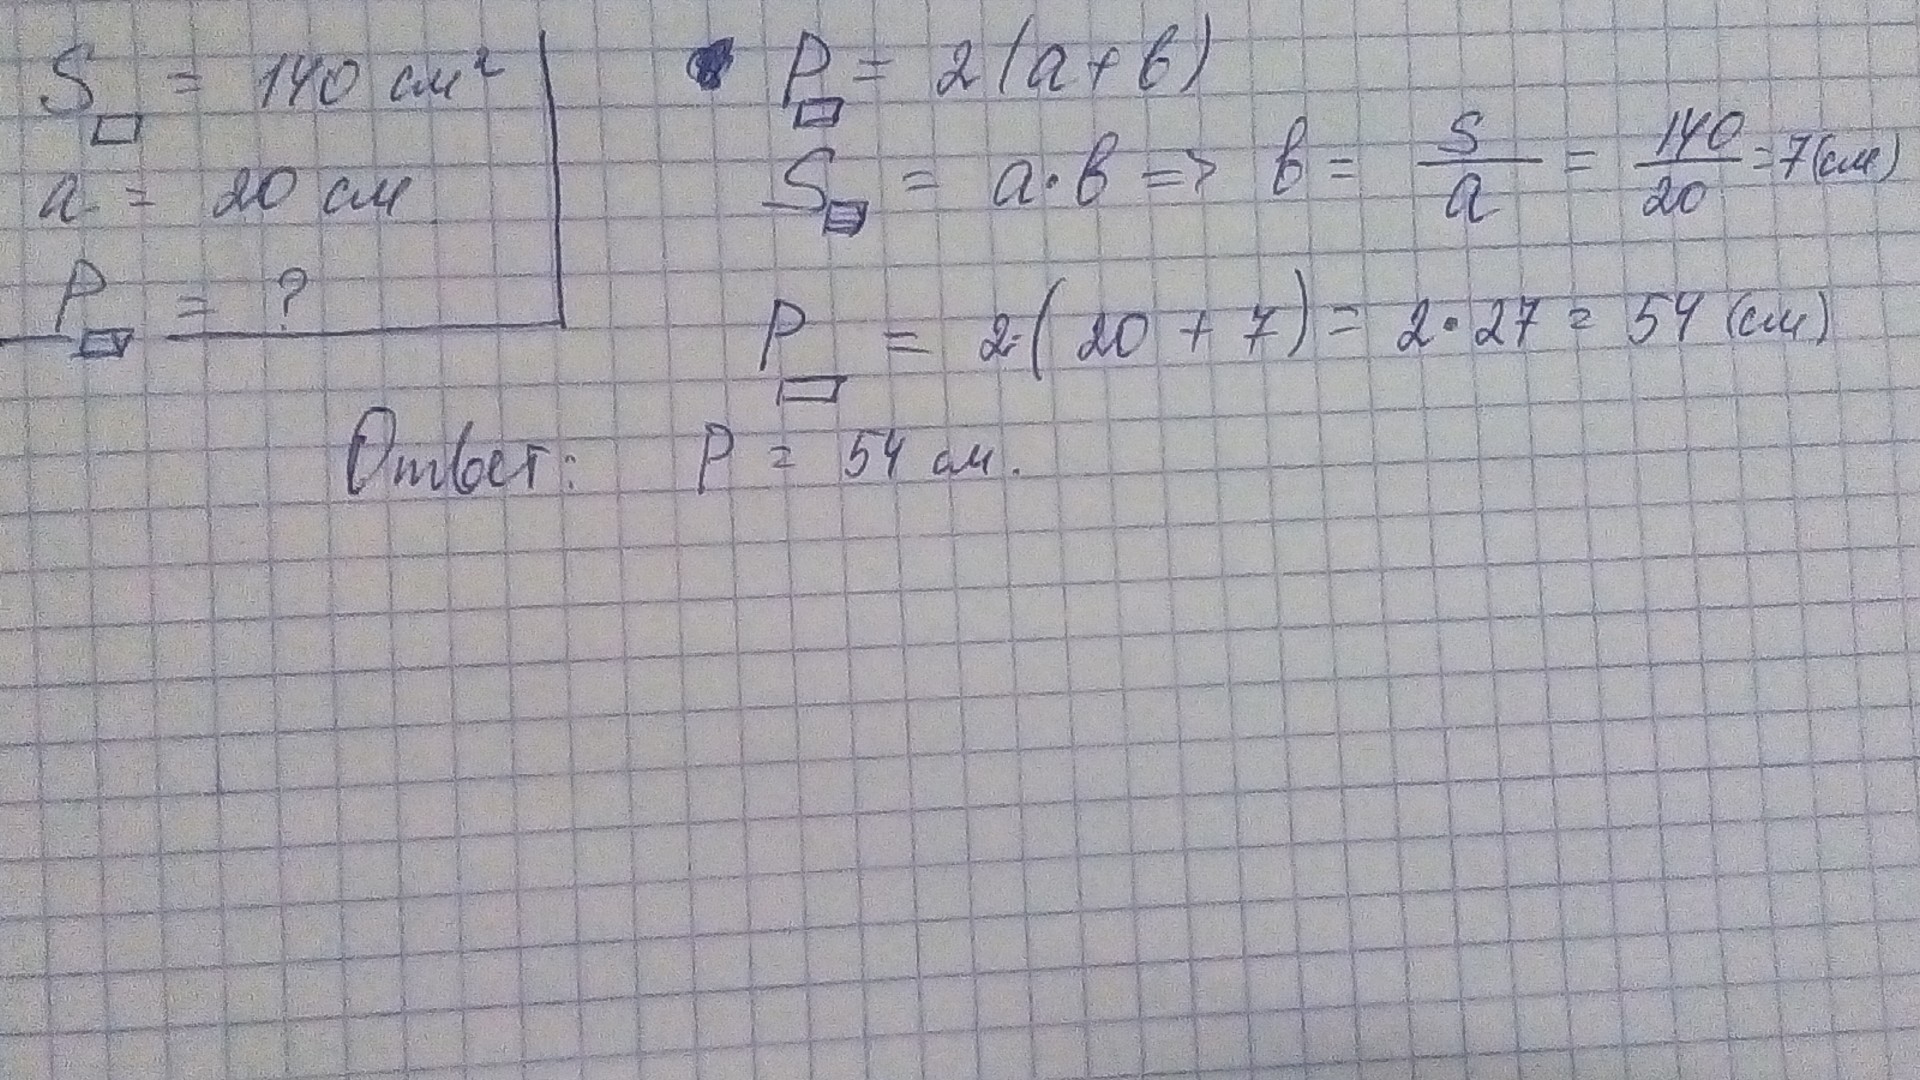 S▭ = 140 см²
a = 20 см
P▭ = ?
P▭ = 2(a+b)
S▭ = a·b => b = S/a = 140/20 = 7(см)
P▭ = 2·(20+7) = 2·27 = 54 (см)
Ответ: P = 54 см.